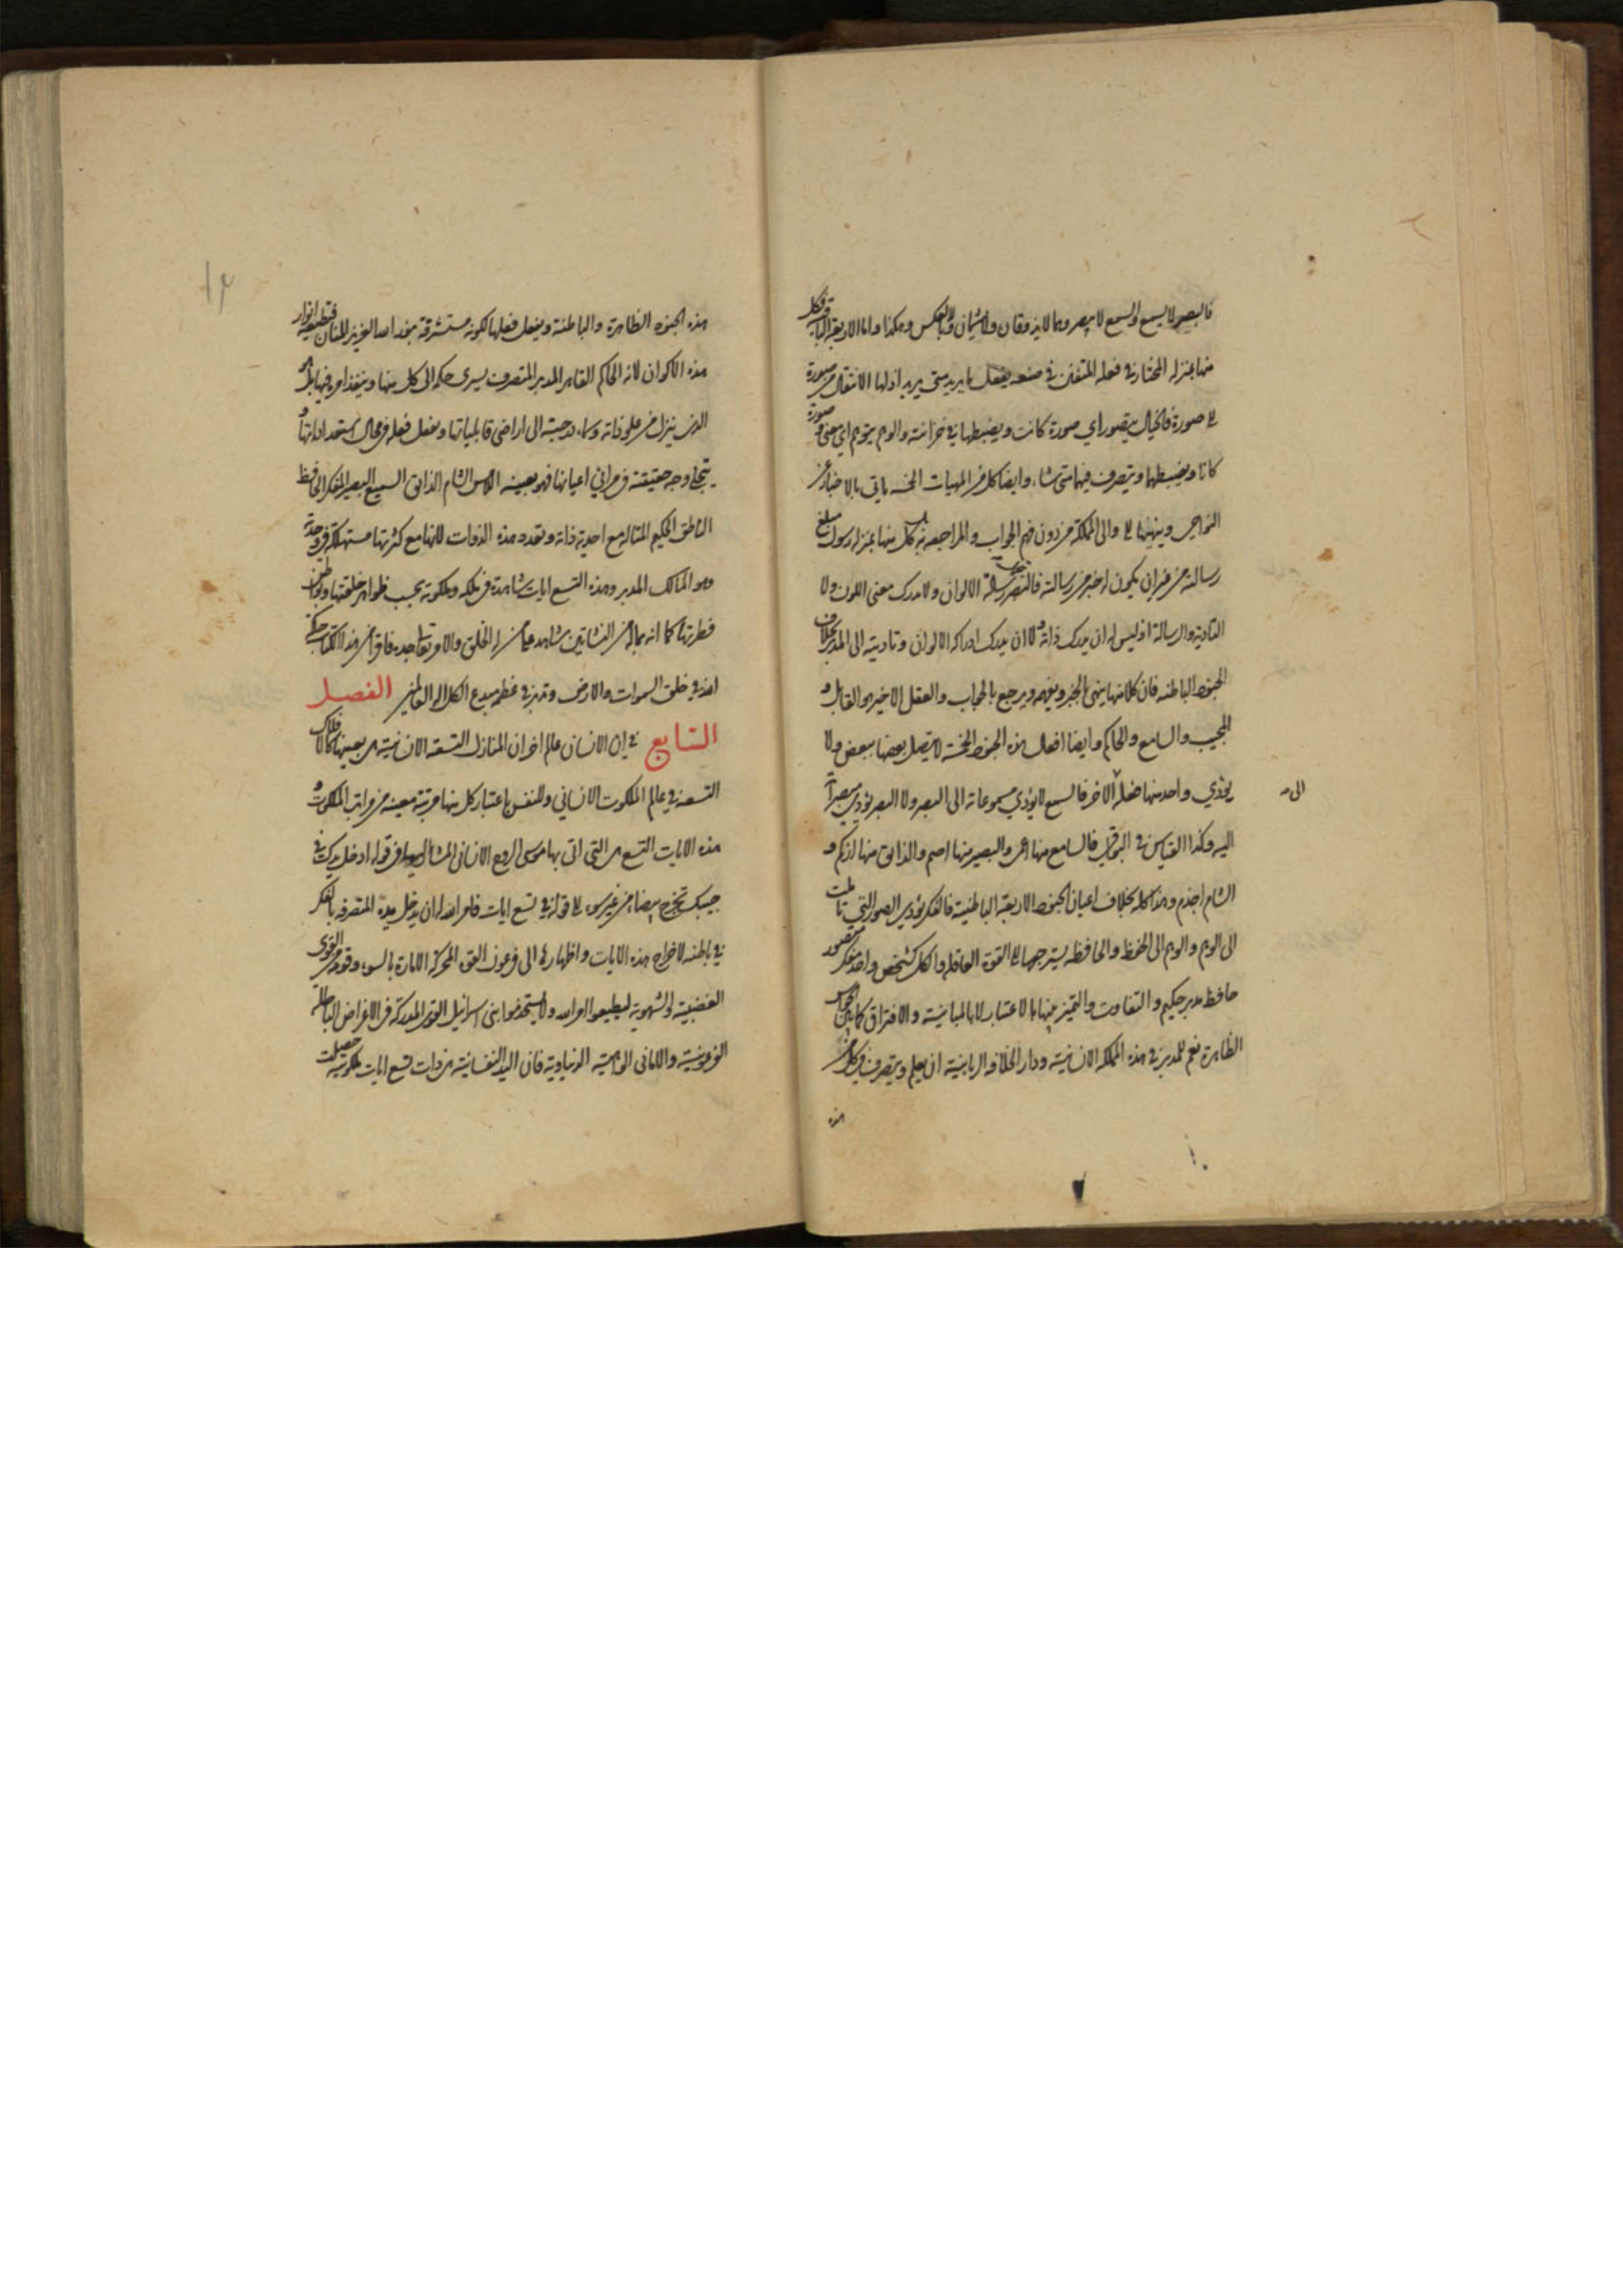 فالبصر لا يسمع والسمع لا يبصر وهما لا يذوقان ولا يشمان وبالعكس وهكذا واما الاربعة الباقية فكل
منها بمنزلة المختار في فعله المتفنن في صنعه يفعل ما يريد متى يريد اذ لها الانتقال من صورة
الى صورة فالخيال يتصور اي صورة كانت ويضبطها في خزانته والوهم يتوهم اي معنى وصورة
كانا ويضبطهما ويتصرف فيهما متى شاء وايضا كل من المهيات الخمسة ياتي بالاخبار عن
النواحي وينهيها الى والى المملكة من دون فهم الجواب والمراجعة به بل كل منها بمنزلة رسول مبلغ
رسالة من غير ان يكون له خبر من رسالته فالبصر رسالته الالوان ولا يدرك معنى اللون ولا
التادية والرسالة اذ ليس له ان يدرك ذاته ولا ان يدرك ادراكه الالوان وتاديته الى المدبر بخلاف
الجنود الباطنة فان كلا منها ينهى الخبر ويفهمه ويرجع بالجواب والعقل الاخير هو القابل و
المجيب والسامع والحاكم وايضا افعال هذه الجنود الخمسة لا يتصل بعضها ببعض ولا
يؤدي واحد منها فعله الى الاخر فالسمع لا يؤدي مسموعاته الى البصر ولا البصر يؤدي مبصراته
اليه وكذا القياس في البواقي فالسامع منها اعمى والبصير منها اصم والذائق منها ازكم و
الشام اجذم وهذا كله بخلاف اعيان الجنود الاربعة الباطنية فالفكر يؤدي الصور التي تاملت
الى الوهم والوهم الى الحفظ والحافظة يسترجعها الى القوة العاقلة والكل كشخص واحد مفكر متصور
حافظ مدبر حكيم والتفاوت والتميز بينها بالاعتبار لا بالمباينية والافتراق كما بين الحواس
الظاهرة نعم للمدبر في هذه المملكة الانسانية ودار الخلافة الربانية ان يعلم ويتصرف في كل من
هذه
هذه الجنود الظاهرة والباطنة ويفعل فعلها لكونه مستشرقة بنور الله العزيز المنان فتطيعه انوار
هذه الاكوان لانه الحاكم القاهر المدبر المتصرف يسري حكمه الى كل منها وينفذ امره فيها بل هو
الذي ينزل من علو ذاته وسماء درجته الى اراضي قابلياتها ويفعل فعله في محال استعداداتها و
يتجلى وجه حقيقته في مرائي اعيانها فهو بعينه اللامس الشام الذائق السميع البصير المفكر الحافظ
الناطق الحكيم المتأله مع احدية ذاته وتعدد هذه الذوات لانها مع كثرتها مستهلكة في وحدته
وهو المالك المدبر وهذه التسع ايات شاهدة في ملكه وملكوته بحسب ظواهر خلقتها وبواطن
فطرتها كما انه بما له من النشاتين شاهد على من له الخلق والامر فاقرا من هذا الكتاب حكمة
الله في خلق السموات والارض وتدبر في عظم مبدع الكل اله العالمين الفصل
التاسع في ان الانسان عالم اخر ان المنازل التسعة الانسانية هي بعينها كالافلاك
التسعة في عالم الملكوت الانساني وللنفس باعتبار كل منها مرتبة معينة من مراتب الملكوت و
هذه الايات التسع هي التي اتى بها موسى الروح الانساني المشار اليها في قوله ادخل يدك في
جيبك تخرج بيضاء من غير سوء الى قوله في تسع ايات فامر الله له ان يدخل يده المتصرفة بالفكر
في باطنه لاخراج هذه الايات واظهارها الى فرعون القوة المحركة الامارة بالسوء وقومه من القوى
الغضبية والشهوية ليطيعوا امر الله ولا يستخدموا بني اسرائيل القوى المدركة في الاغراض الباطلة
الفرعونية والاماني الواهمية الدنياوية فان اليد النفسانية من ذوات تسع ايات ملكوتية حصلت